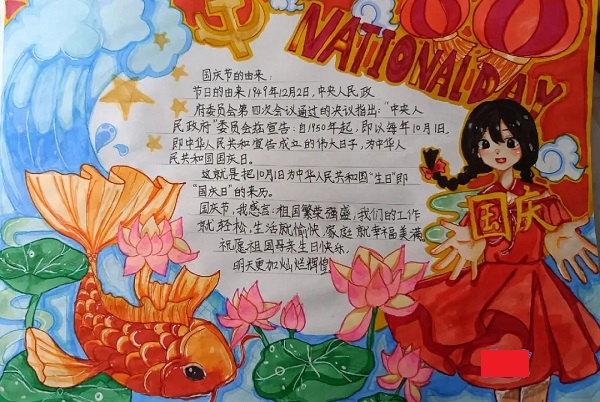 NATIONAL DAY
国庆节的由来:
节日的由来1949年12月2日,中央人民政
府委员会第四次会议通过的决议指出:"中央人
民政府"委员会在宣告:自1950年起,即以每年10月1日,
即中华人民共和宣告成立的伟大日子,为中华人
民共和国国庆日。
这就是把10月1日为中华人民共和国"生日"即
"国庆日"的来历。
国庆节,我感言:祖国繁荣强盛,我们的工作
就轻松,生活就愉快,家庭就幸福美满。
祝愿祖国母亲生日快乐,
明天更加灿烂辉煌
国庆